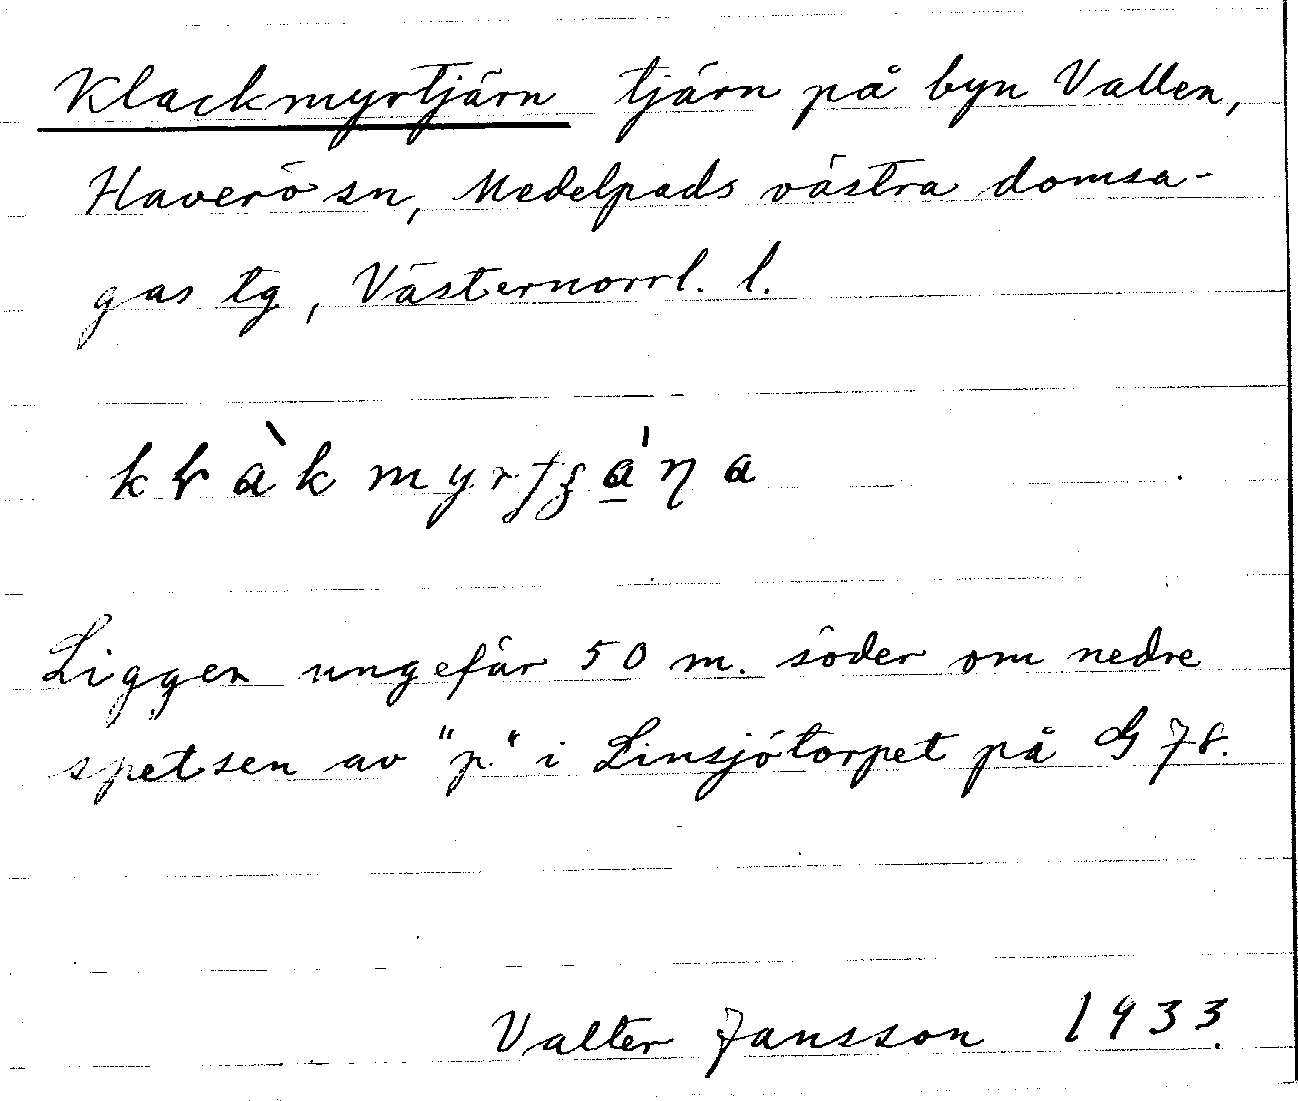 Klackmyrtjärn tjärn på byn Vallen,
Haverö sn, Medelpads västra domsa-
gas tg, Västernorrl. l.
Ligger ungefär 50 m. söder om nedre
spetsen av "p" i Linsjötorpet på G 78.
Valter Jansson 1933.